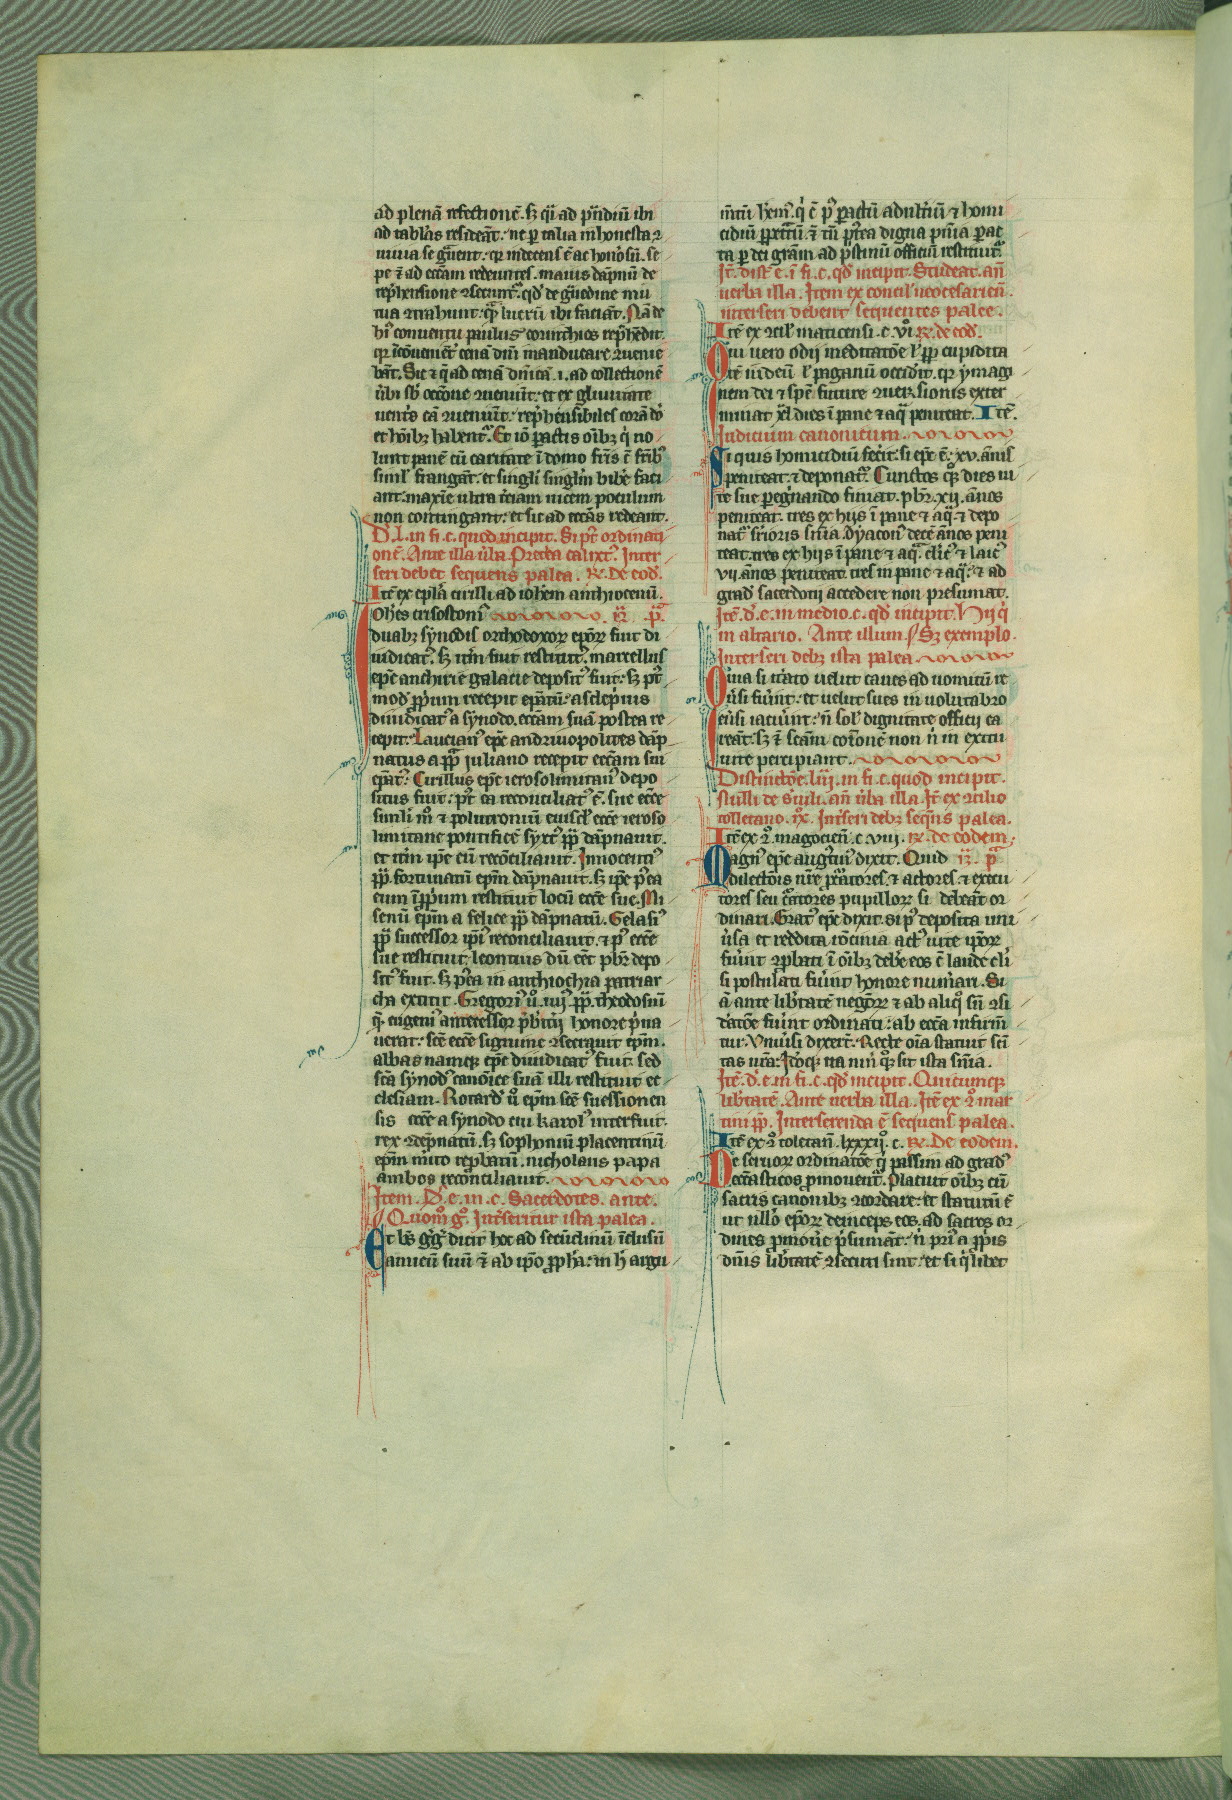 ad plenā refectionē. sꝫ qͥ ad pͣndiū ibi
ad tabl̓as resideāt. ne ꝑ talia inhonesta ⁊
nimia se gͣuent. qꝛ indecens ē ac honosū. se
pe ē ad eccām redeuntes. maius dāpnū de
rep̓hensione ↄsecunt᷑. qd̓ de gͣuedine mu
tua ↄtrahunt. qͣ lucrū ibi faciāt. Nā de
hͥ conuentu paulus corinthios rep̓hēdit.
qꝛ īconueniēt̓ cenā dn̄i manducare ↄuenie
bāt. Sic ⁊ qͥ ad cenā dn̄icā .i. ad collectionē
u̓bi sb̓ occōne ↄueniūt. et ex gluuiitate
uentͥs cā ↄueniūt. rep̓hensibiles corā dō
et hōibꝫ habent᷑. Et iō ꝑactis oībꝫ qͥ no
lunt panē cū caritate ī domo fr̄is ē frībꝰ
simͥl frangāt. et singli singlīn bibe faci
ant. maxīe ultra tc̓iam uicem poculum
non contingant. et sic ad eccās redeant.
D. l. in fi. c. quod incipit. Si pͬ ordinati
onē. Ante illa u̓ba. Preterea calixtꝰ. Inter
seri debet sequens palea. ℞. De eod̓.
Itē ex epl̓a cirilli ad ioh̓em anthiocenū.
Iohēs crisostomͥ
duabꝫ synodis orthodoxoꝝ ep̄oꝝ fuit di
iudicatꝰ. sꝫ itm̄ fuit restitutꝰ. marcellus
ep̄e anchirie galacie depositꝰ fuit. sꝫ pͬ
mod̓ ꝓprium recepit ep̄atū. asclepius
diiudicatꝰ a synodo. eccām suā postea re
cepit. Laucianꝰ ep̄c andrinopolites dāp
natus a pp̄ iuliano recepit eccām sui
ep̄atꝰ. Cirillus ep̄c ierosolimitanꝰ depo
situs fuit. pͬ ea reconciliatꝰ ē. sue eccē
simili mͦ ⁊ policronū eiusd̓ eccē ieroso
limitane pontificē syxtꝰ pp̄ dāpnauit.
et itm̄ ip̄e eū recōciliauit. Innocentiꝰ
pp̄. fortunatū ep̄m dāpnauit. sꝫ ip̄e pͦea
eum īpp̄um restituit locū eccē sue. Mi
senū ep̄m a felice pp̄ dāpnatū. Gelasiꝰ
pp̄ successor ip̄i reconciliauit. ⁊ pͦ eccē
sue restituit. leontius dū eēt pb̄r depo
sitꝰ fuit. sꝫ pͦea in anthiochia patriar
cha extitit. Gregoriꝰ uͦ .iiijꝰ. pp̄. theodosiū
qͤ. eugeniꝰ antecessor pb̓itij honore pͥua
uerat. scē eccē signiine ↄsecrauit ep̄m.
albas namqꝫ ep̄c diiudicatꝰ fuit. sed
sc̄a synodꝰ canōice suā illi restituit ec
clesiam. Rotardꝰ uͦ epīn scē suession en
sis eccē a synodo cui karolꝰ interfuit
rex ↄdēpnatū. sꝫ sophoniū placentinū
ep̄m mͥto rep̓batū. nicholaus papa
ambos reconciliauit.
Item. D. e. in. c. Sacerdotes. ante.
§ Quoniā gͦ. Int̓seritur ista palea.
Et bs̄ gͥgͬ dicit hoc ad secūdinū īclusū
Canicū suū ē ab ip̄o ꝓpha. in h̄ argu
m̄tū hēm̓. qͥ ē pͬ ꝑactū adult̓iū ⁊ homi
cidiū ꝑpet̓tū. ē tn̄ pͦtea digna pn̄ia ꝑac
ta ꝑ dei grām ad p̓stinū officiū restituit᷑.
It̄. dist̓. e. ī fi. c. qd̓ incipit. Studeat. an̄
uerba illa. Item ex concil̓ neocesarien̄.
interseri debent sequentes palee.
Itē ex ↄcil̓ maticensi. c. vjͦ. ℞. de eod̓.
Qui uero odij meditatōe ul̓ ꝓp̄ cupidita
tē iudeū ul̓ paganū occid̓it. qꝛ ymagi
nem dei ⁊ spē future ↄuersionis exter
minat .xl. dies ī pane ⁊ aqͣ peniteat. Itē.
Iudicium canonicum.
Si quis homicidiū fec̓it. si ep̄c ē. xv. ānis
peniteat. ⁊ deponat᷑. Cunctos qꝫ dies ui
te sue ꝑeg̓nando finiat. pb̄r. xij. ānos
peniteat. tres ex hijs ī pane ⁊ aqͣ. ⁊ depo
nat᷑ sr̄ioris sn̄ia. dyaconꝰ decē ānos peni
teat. tres ex hijs ī pane ⁊ aqͣ. cl̓icꝰ ⁊ laicꝰ
vij. ānos peniteat. tres in pane ⁊ aqͣ. ⁊ ad
grad̓ sacerdotij accedere non presumat.
Itē. d̓. e. in medio. c. qd̓ incipit. Hij qͥ
in altario. Ante illum. § Sꝫ exemplo.
Interseri debꝫ ista palea
Quia si it̓ato uelut canes ad uomitū re
u̓si fu̓int. et uelut sues in uolutabro
ceu̓si iacu̓int. n̄ solꝰ dignitate officij ca
reāt. sꝫ ē scām cōīonē non n̄ in exitu
uite percipiant.
Distinctōe. liij. in fi. c. quod incipit.
Nulli de s̓uili. an̄ u̓ba illa. It̄ ex ↄcilio
tolletano. ix. Int̓seri debꝫ seqn̄s palea.
Itē ex ↄͦ. magocien̄. c. viij. ℞. de eodem.
Magnꝰ ep̄c augꝰtinꝰ dixit. Quid
dilectōīs nr̄e ꝓcͣtores. ⁊ actores. ⁊ execu
tores seu cͣatores pupilloꝝ si debeāt or
dinari. Gratꝰ ep̄c dixit. si pͦ deposita uni
u̓sa et reddita rōcinia actꝰ uite ip̄oꝝ
fu̓int ꝓbati ī oībꝫ deb̓e eos ē laude cl̓i
si postulati fu̓int honore mun̓ari. Si
ā ante lib̓tatē negōꝝ ⁊ ab aliqͦ sn̄ ↄsi
d̓atōe fu̓int ordinati. ab eccā infirm̄
tur. Vniu̓si dixer̄t. Recte oīa statuit scī
tas ur̄a. Idoqꝫ ita nūn̄ qꝫ sit ista sn̄ia.
Itē. d̓. e. in fi. c. qd̓ incipit. Quicumqꝫ
lib̓tatē. Ante uerba illa. Itē ex ↄͦ mar
tini pp̄. Interserenda ē sequens palea.
Itē ex ↄͦ toletan̄. lxxxijͦ. c. ℞. De eodem.
De seruoꝝ ordinatōe qͥ passim ad gradꝰ
eccāsticos ꝓmouent᷑. Placuit oībꝫ cū
sacris canonibꝫ ↄcordare. et statutū ē
ut nullꝰ ep̄oꝝ deinceps eos. ad sacros or
dines ꝓmou̓e p̓sumāt. n̄ prͥ a ꝓp̓ijs
dn̄is lib̓tatē ↄsecuti sint. et si qͥlibet